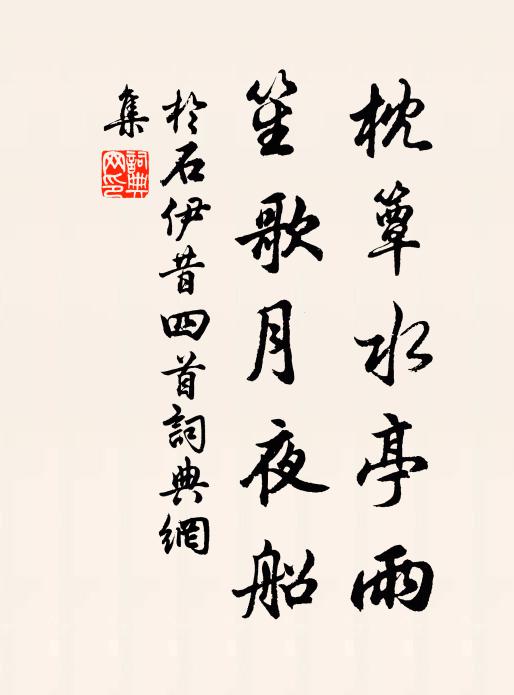 枕簟水亭雨
笙歌月夜船
於石伊昔四首詞典網
集
詞典网印